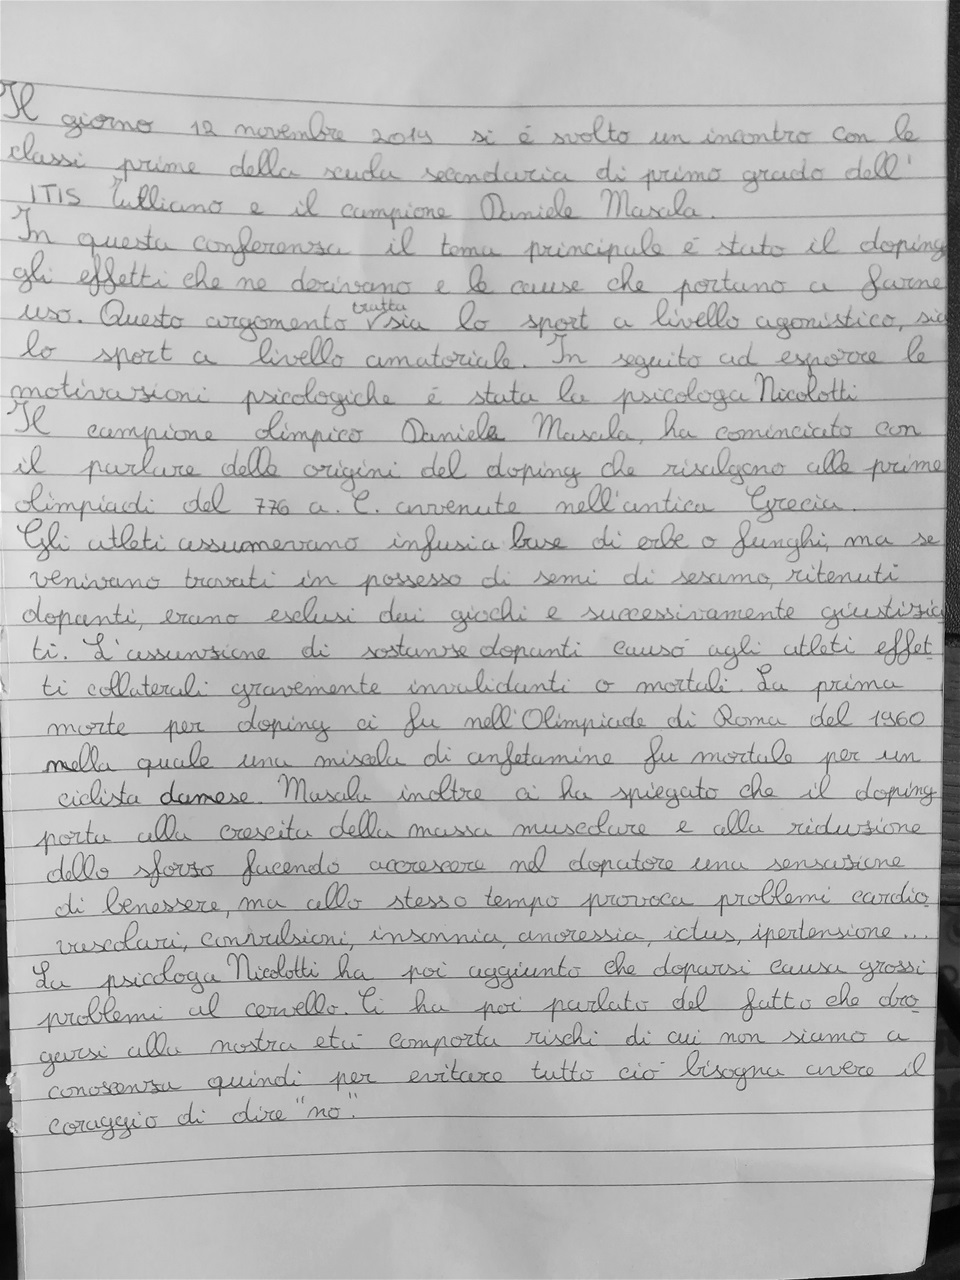 Il giorno 12 novembre 2019 si é svolto un incontro con le
classi prime della scuola secondaria di primo grado dell'
ITIS Tulliano e il campione Daniele Masala.
In questa conferenza il tema principale é stato il doping
gli effetti che ne derivano e le cause che portano a farne
uso. Questo argomento tratta sia lo sport a livello agonistico, sia
lo sport a livello amatoriale. In seguito ad esporre le
motivazioni psicologiche é stata la psicologa Nicolotti
Il campione olimpico Daniele Masala, ha cominciato con
il parlare delle origini del doping che risalgono alle prime
olimpiadi del 776 a.C. avvenute nell'antica Grecia.
Gli atleti assumevano infusi a base di erbe o funghi, ma se
venivano trovati in possesso di semi di sesamo, ritenuti
dopanti, erano esclusi dai giochi e successivamente giustizia
ti. L'assunzione di sostanze dopanti causó agli atleti effet_
ti collaterali gravemente invalidanti o mortali. La prima
morte per doping ci fu nell'Olimpiade di Roma del 1960
nella quale una miscela di anfetamine fu mortale per un
ciclista danese. Masala inoltre ci ha spiegato che il doping
porta alla crescita della massa muscolare e alla riduzione
dello sforzo facendo accrescere nel dopatore una sensazione
di benessere, ma allo stesso tempo provoca problemi cardio_
vascolari, convulsioni, insonnia, anoressia, ictus, ipertensione...
La psicologa Nicolotti ha poi aggiunto che doparsi causa grossi
problemi al cervello. Ci ha poi parlato del fatto che dro_
garsi alla nostra etá comporta rischi di cui non siamo a
conoscenza quindi per evitare tutto ció bisogna avere il
coraggio di dire "no".